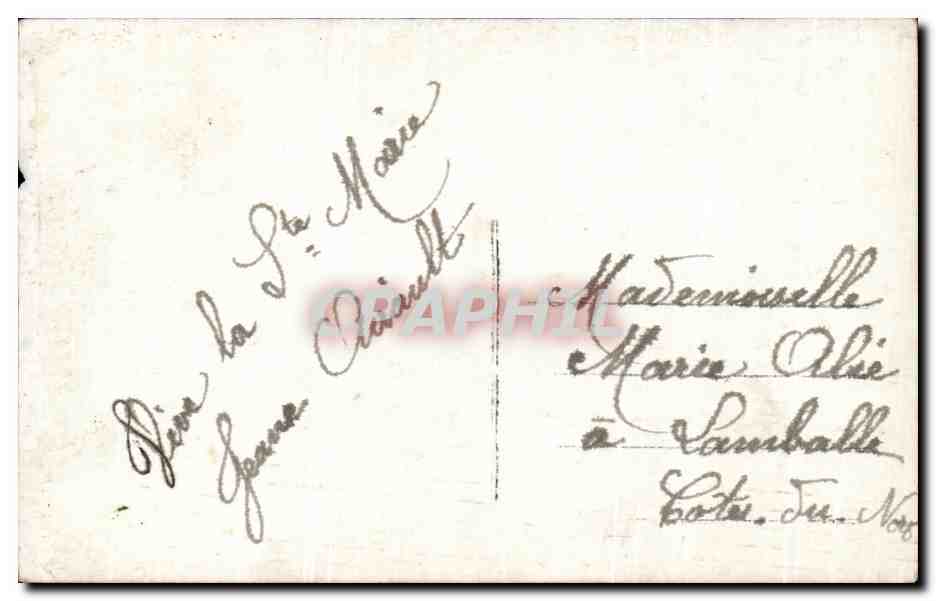 Vive la Ste Marie
Jeanne
Mademoiselle
Marie
à Lamballe
Côtes. du. Nord
CPAPHIL